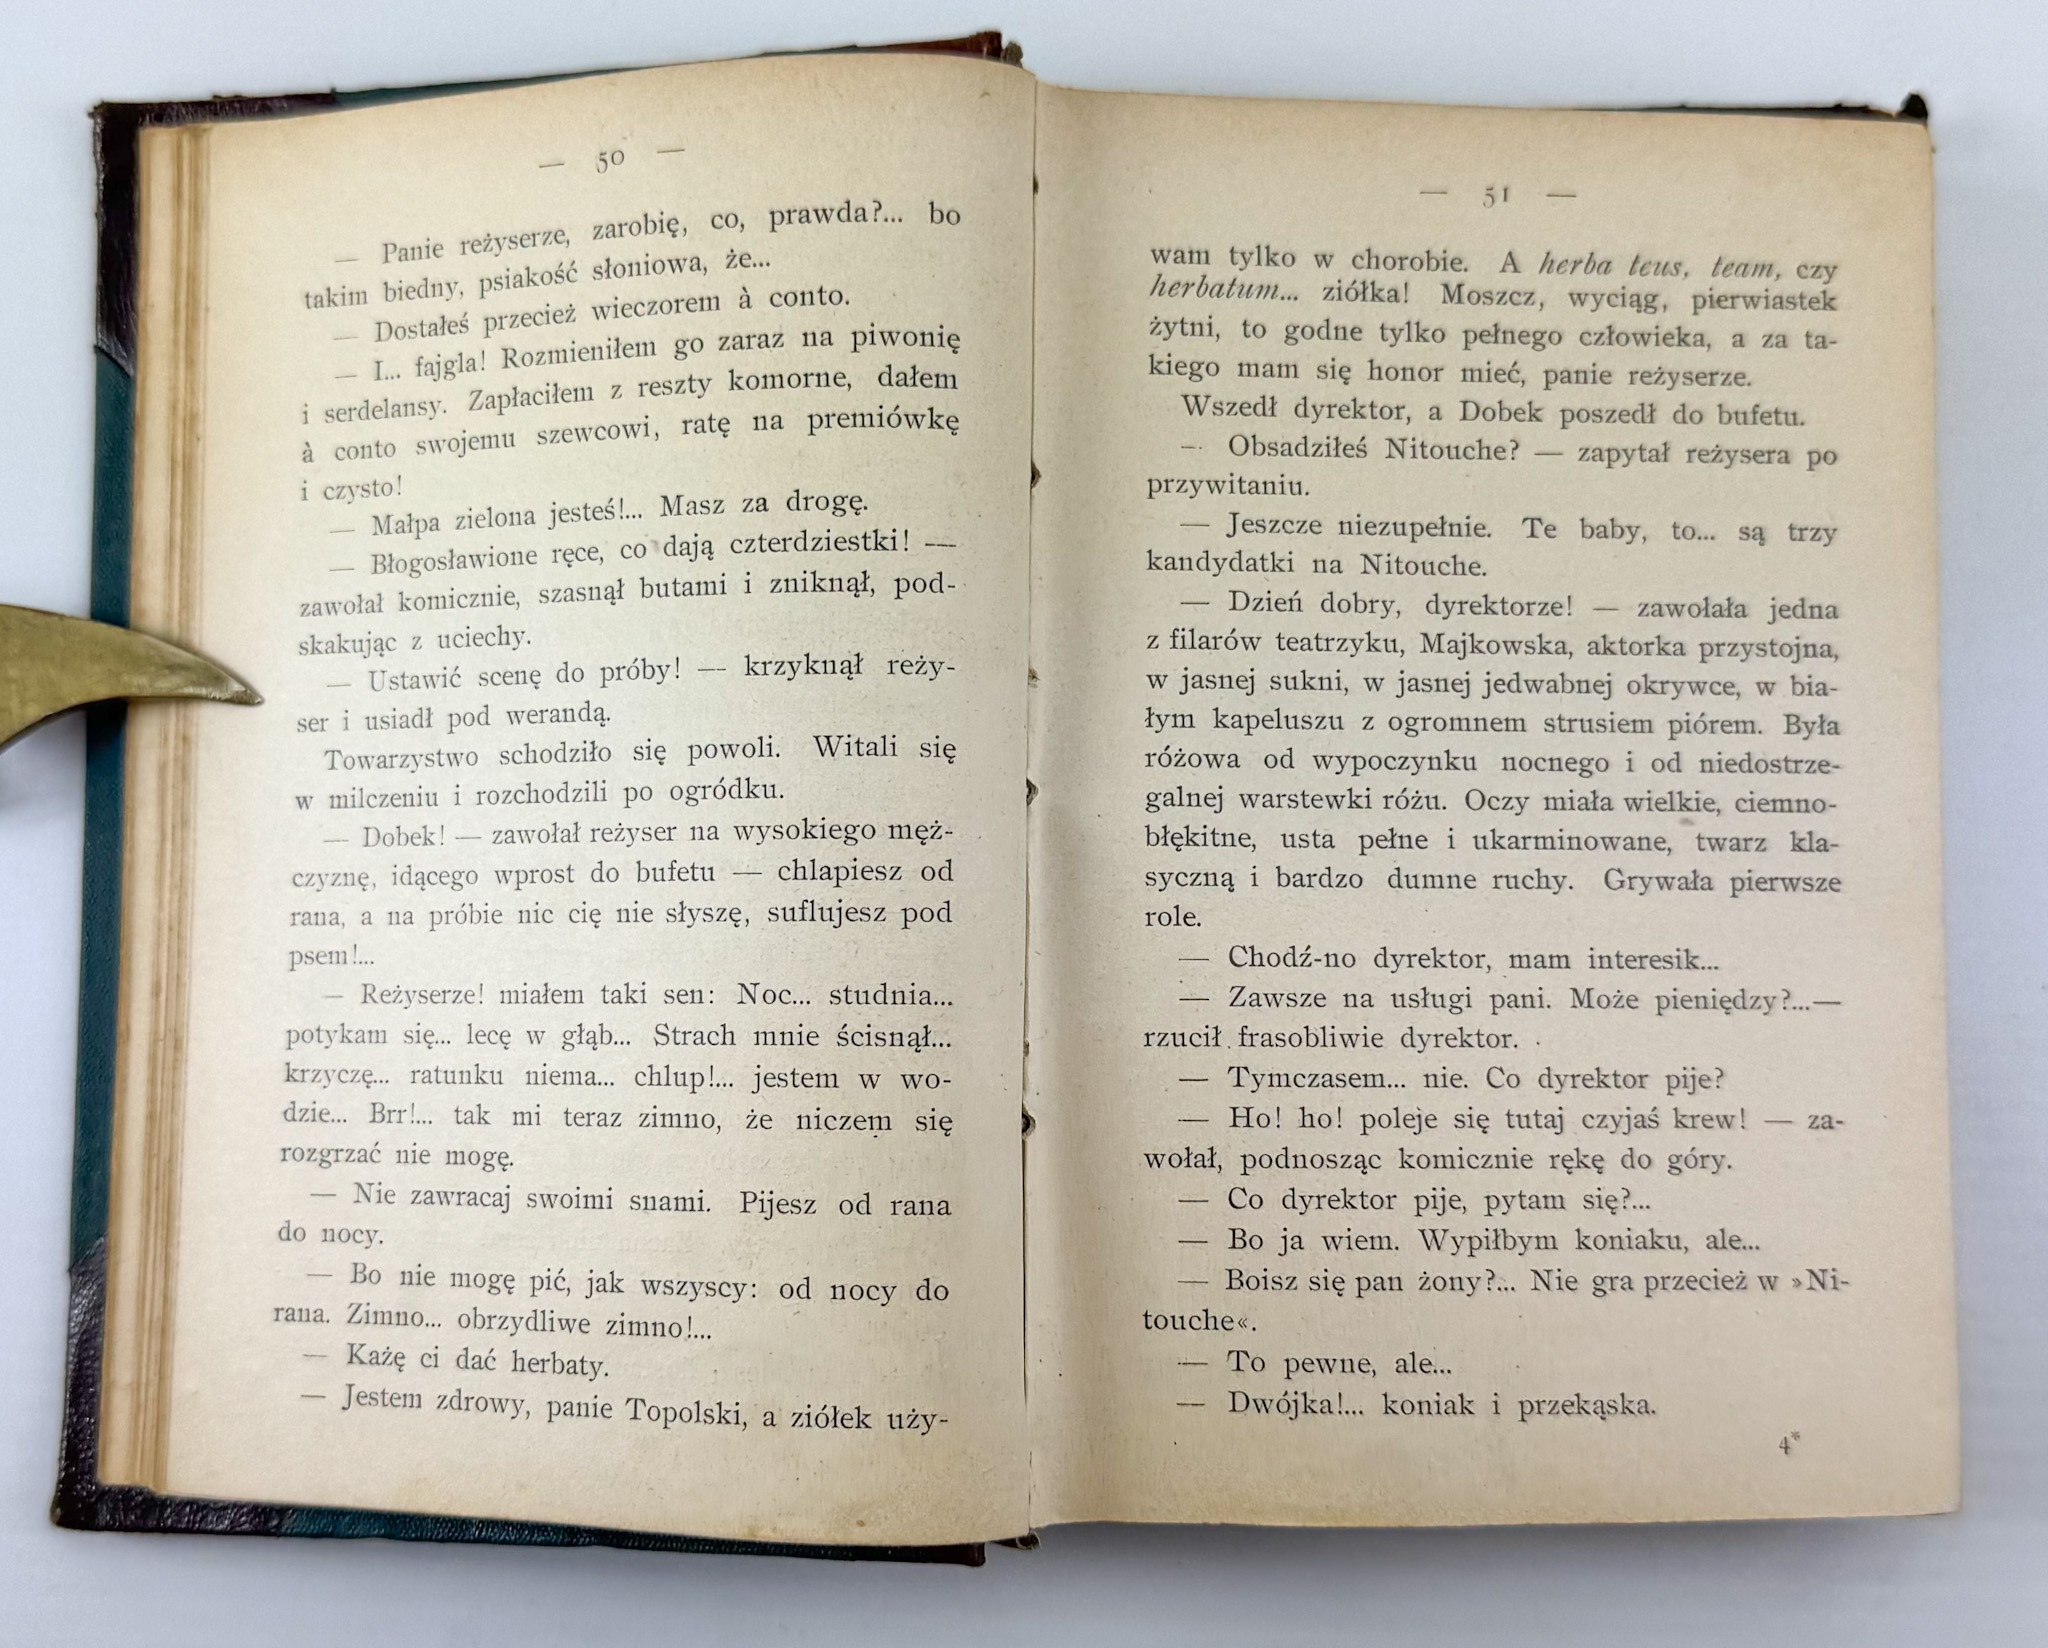 — 50 —
— Panie reżyserze, zarobię, co, prawda?... bo
takim biedny, psiakość słoniowa, że...
— Dostałeś przecież wieczorem à conto.
— I... fajgla! Rozmieniłem go zaraz na piwonię
i serdelansy. Zapłaciłem z reszty komorne, dałem
à conto swojemu szewcowi, ratę na premiówkę
i czysto!
— Małpa zielona jesteś!... Masz za drogę.
— Błogosławione ręce, co dają czterdziestki! —
zawołał komicznie, szasnął butami i zniknął, pod-
skakując z uciechy.
— Ustawić scenę do próby! — krzyknął reży-
ser i usiadł pod werandą.
Towarzystwo schodziło się powoli. Witali się
w milczeniu i rozchodzili po ogródku.
— Dobek! — zawołał reżyser na wysokiego męż-
czyznę, idącego wprost do bufetu — chlapiesz od
rana, a na próbie nic cię nie słyszę, suflujesz pod
psem!...
— Reżyserze! miałem taki sen: Noc... studnia...
potykam się... lecę w głąb... Strach mnie ścisnął...
krzyczę... ratunku niema... chlup!... jestem w wo-
dzie... Brr!... tak mi teraz zimno, że niczem się
rozgrzać nie mogę.
— Nie zawracaj swoimi snami. Pijesz od rana
do nocy.
— Bo nie mogę pić, jak wszyscy: od nocy do
rana. Zimno... obrzydliwe zimno!...
— Każę ci dać herbaty.
— Jestem zdrowy, panie Topolski, a ziółek uży-
— 51 —
wam tylko w chorobie. A herba teus, team, czy
herbatum... ziółka! Moszcz, wyciąg, pierwiastek
żytni, to godne tylko pełnego człowieka, a za ta-
kiego mam się honor mieć, panie reżyserze.
Wszedł dyrektor, a Dobek poszedł do bufetu.
— Obsadziłeś Nitouche? — zapytał reżysera po
przywitaniu.
— Jeszcze niezupełnie. Te baby, to... są trzy
kandydatki na Nitouche.
— Dzień dobry, dyrektorze! — zawołała jedna
z filarów teatrzyku, Majkowska, aktorka przystojna,
w jasnej sukni, w jasnej jedwabnej okrywce, w bia-
łym kapeluszu z ogromnem strusiem piórem. Była
różowa od wypoczynku nocnego i od niedostrze-
galnej warstewki różu. Oczy miała wielkie, ciemno-
błękitne, usta pełne i ukarminowane, twarz kla-
syczną i bardzo dumne ruchy. Grywała pierwsze
role.
— Chodź-no dyrektor, mam interesik...
— Zawsze na usługi pani. Może pieniędzy?...—
rzucił frasobliwie dyrektor.
— Tymczasem... nie. Co dyrektor pije?
— Ho! ho! poleje się tutaj czyjaś krew! — za-
wołał, podnosząc komicznie rękę do góry.
— Co dyrektor pije, pytam się?...
— Bo ja wiem. Wypiłbym koniaku, ale...
— Boisz się pan żony?... Nie gra przecież w »Ni-
touche«.
— To pewne, ale...
— Dwójka!... koniak i przekąska.
4*